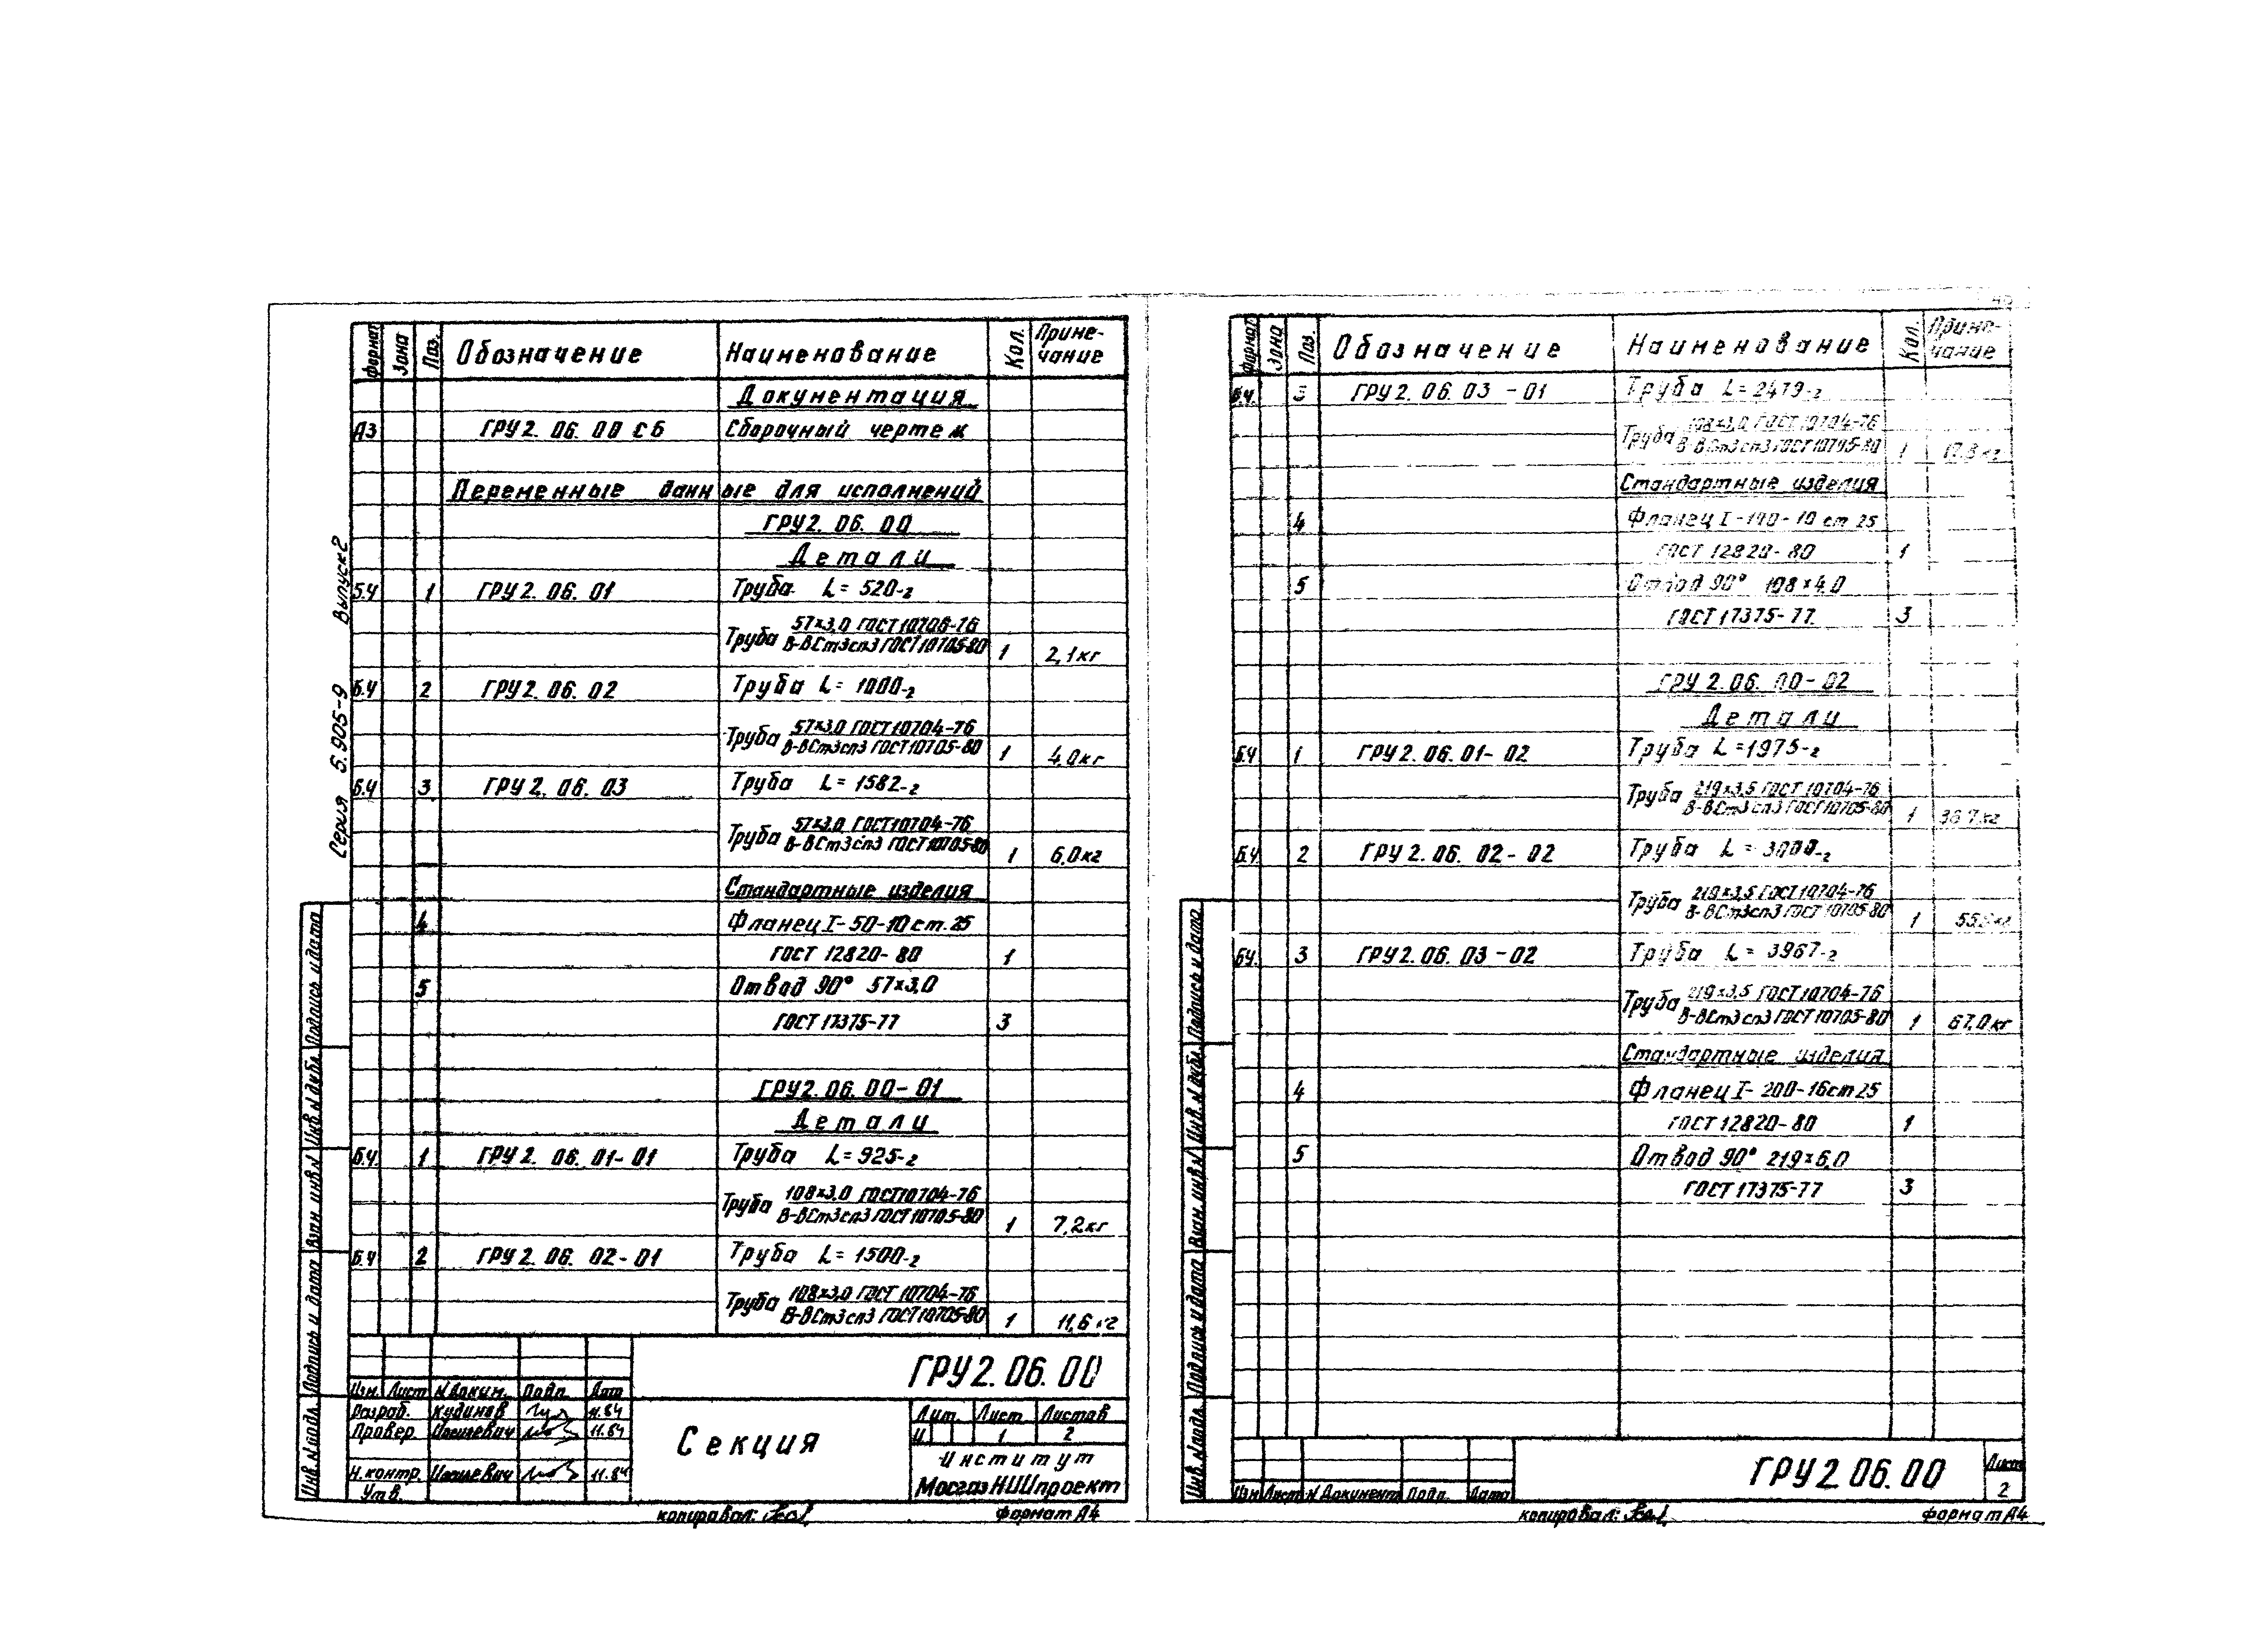 Серия 5.905-9 Выпуск 2
Формат Зона Поз. Обозначение Наименование Кол. Примечание
Документация
А3 ГРУ2. 06. 00 СБ Сборочный чертеж
Переменные данные для исполнений
ГРУ2. 06. 00
Детали
Б.Ч 1 ГРУ2. 06. 01 Труба L= 520-2
Труба 57×3,0 ГОСТ 10706-76
В-ВСт3сп3 ГОСТ 10705-80 1 2,1кг
Б.Ч 2 ГРУ2. 06. 02 Труба L= 1000-2
Труба 57×3,0 ГОСТ 10704-76
В-ВСт3сп3 ГОСТ 10705-80 1 4,0кг
Б.Ч 3 ГРУ2. 06. 03 Труба L= 1582-2
Труба 57×3,0 ГОСТ 10704-76
В-ВСт3сп3 ГОСТ 10705-80 1 6,0кг
Стандартные изделия
4 Фланец I-50-10 ст. 25
ГОСТ 12820-80 1
5 Отвод 90° 57×3,0
ГОСТ 17375-77 3
ГРУ2. 06. 00-01
Детали
Б.Ч. 1 ГРУ2. 06. 01-01 Труба L= 925-2
Труба 108×3,0 ГОСТ 10704-76
В-ВСт3сп3 ГОСТ 10705-80 1 7,2кг
Б.Ч 2 ГРУ2. 06. 02-01 Труба L= 1500-2
Труба 108×3,0 ГОСТ 10704-76
В-ВСт3сп3 ГОСТ 10705-80 1 11,6 кг
Инв. N подл. Подпись и дата Взам. инв. N Инв. N дубл. Подпись и дата
ГРУ2. 06. 00
Изм. Лист N Докум. Подп. Дата
Разраб. Кудинов 11.84
Провер. 11.84
Н.контр. 11.84
Утв.
Секция
Лит. Лист Листов
И 1 2
Институт
МосгазНИИпроект
копировал: формат А4
Формат Зона Поз. Обозначение Наименование Кол. Примечание
Б.Ч. 3 ГРУ2. 06. 03 -01 Труба L= 2479-2
Труба 108×3,0 ГОСТ 10704-76
В-ВСт3сп3 ГОСТ 10705-80 1 17,8 кг
Стандартные изделия
4 Фланец I-100-10 ст 25
ГОСТ 12820-80 1
5 Отвод 90° 108×4,0
ГОСТ 17375-77. 3
ГРУ 2. 06. 00-02
Детали
Б.Ч 1 ГРУ2. 06. 01-02 Труба L=1975-2
Труба 219×3,5 ГОСТ 10704-76
В-ВСт3сп3 ГОСТ 10705-80 1 кг
Б.Ч. 2 ГРУ2. 06. 02-02 Труба L= 3000-2
Труба 219×3,5 ГОСТ 10704-76
В-ВСт3сп3 ГОСТ 10705-80 1
Б.Ч. 3 ГРУ2. 06. 03 -02 Труба L= 3967-2
Труба 219×3,5 ГОСТ 10704-76
В-ВСт3сп3 ГОСТ 10705-80 1 67,0 кг
Стандартные изделия
4 Фланец I-200-16 ст 25
ГОСТ 12820-80 1
5 Отвод 90° 219×6,0
ГОСТ 17375-77 3
Инв. N подл. Подпись и дата Взам. инв. N Инв. N дубл. Подпись и дата
Изм Лист N Документ Подп. Дата
ГРУ2.06.00
Лист
2
копировал: формат А4